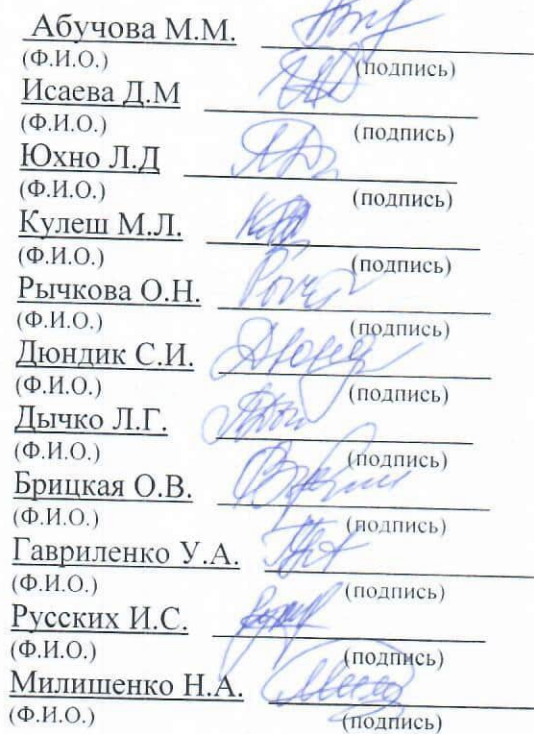 Абучова М.М.
(Ф.И.О.) (подпись)
Исаева Д.М
(Ф.И.О.) (подпись)
Юхно Л.Д
(Ф.И.О.) (подпись)
Кулеш М.Л.
(Ф.И.О.) (подпись)
Рычкова О.Н.
(Ф.И.О.) (подпись)
Дюндик С.И.
(Ф.И.О.) (подпись)
Дычко Л.Г.
(Ф.И.О.) (подпись)
Брицкая О.В.
(Ф.И.О.) (подпись)
Гавриленко У.А.
(Ф.И.О.) (подпись)
Русских И.С.
(Ф.И.О.) (подпись)
Милишенко Н.А.
(Ф.И.О.) (подпись)